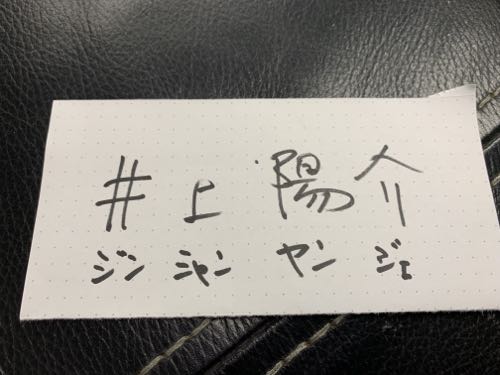 井上 陽介
ジン シャン ヤン ジェ